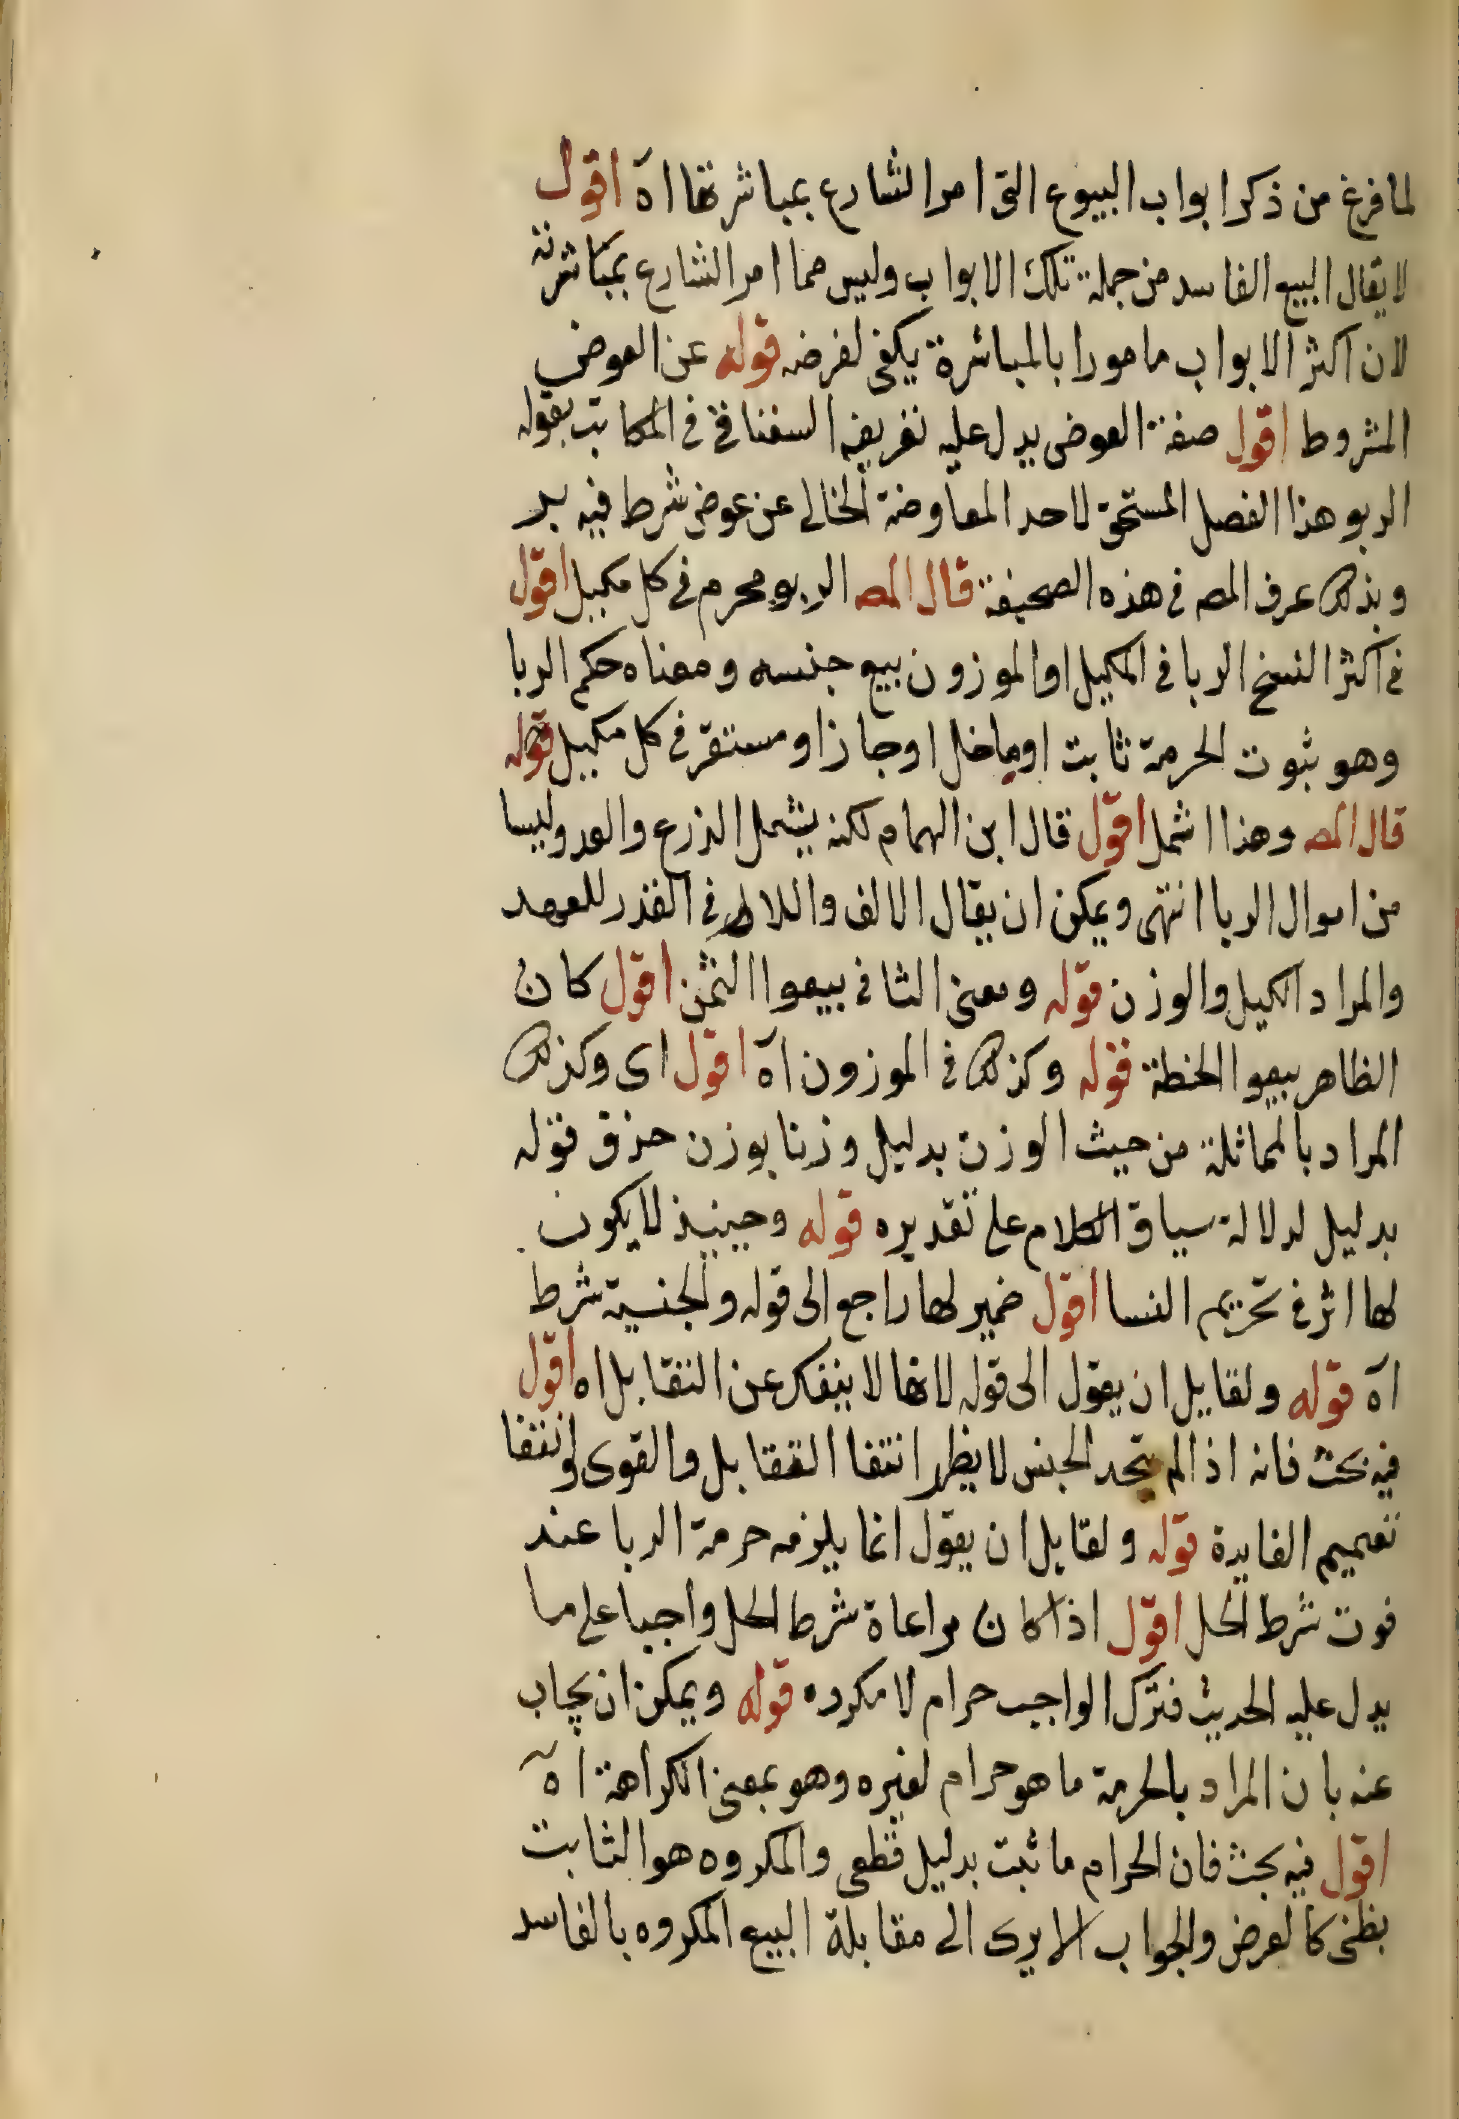 لما فرغ من ذكر ابواب البيوع التى امر الشارع بمباشرتها اه اقول
لا يقال البيع الفاسد من جملة تلك الابواب وليس مما امر الشارع بمباشرته
لان اكثر الابواب مامورا بالمباشرة يكفى لغرضه قوله عن العوض
المشروط اقول صفة العوض يدل عليه تعريف السغناقى فى المكاتب بقوله
الربو هذا الفصل المستحق لاحد المعاوضة الخالى عن عوض شرط فيه
وبذلك عرف المص فى هذه الصحيفة قال المص الربو محرم فى كل مكيل اقول
فى اكثر النسخ الربا فى المكيل او الموزون بيع جنسه ومعناه حكم الربا
وهو ثبوت الحرمة ثابت او حاصل او جاز او مستقر فى كل مكيل قوله
قال المص وهذا اشمل اقول قال ابن الهمام لكنه يشمل الذرع والعد وليسا
من اموال الربا انتهى ويمكن ان يقال الالف واللام فى القدر للعهد
والمراد الكيل والوزن قوله ومعنى الثانى بيعوا الثمن اقول كان
الظاهر بيعوا الحنطة قوله وكذلك فى الموزون اه اقول اى وكذلك
المراد بالمماثلة من حيث الوزن بدليل وزنا بوزن حذف قوله
بدليل لدلالة سياق الكلام على تقديره قوله وحينيذ لا يكون
لها اثر فى تحريم النسا اقول ضمير لها راجع الى قوله والجنسية شرط
اه قوله ولقايل ان يقول الى قوله لانها لا ينفك عن التقابل اه اقول
فيه بحث فانه اذا لم يتحد الجنس لا يظهر انتفا التقابل والقوى لو انتفا
تعميم الفايدة قوله ولقايل ان يقول انما يلزمه حرمة الربا عند
فوت شرط الحل اقول اذا كان مراعاة شرط الحل واجبا على ما
يدل عليه الحديث فترك الواجب حرام لا مكروه قوله ويمكن ان يجاب
عنه بان المراد بالحرمة ما هو حرام لغيره وهو بمعنى الكراهة اه
اقول فيه بحث فان الحرام ما ثبت بدليل قطعى والمكروه هو الثابت
بظنى كالفرض والجواب الا يرى الى مقابلة البيع المكروه بالفاسد